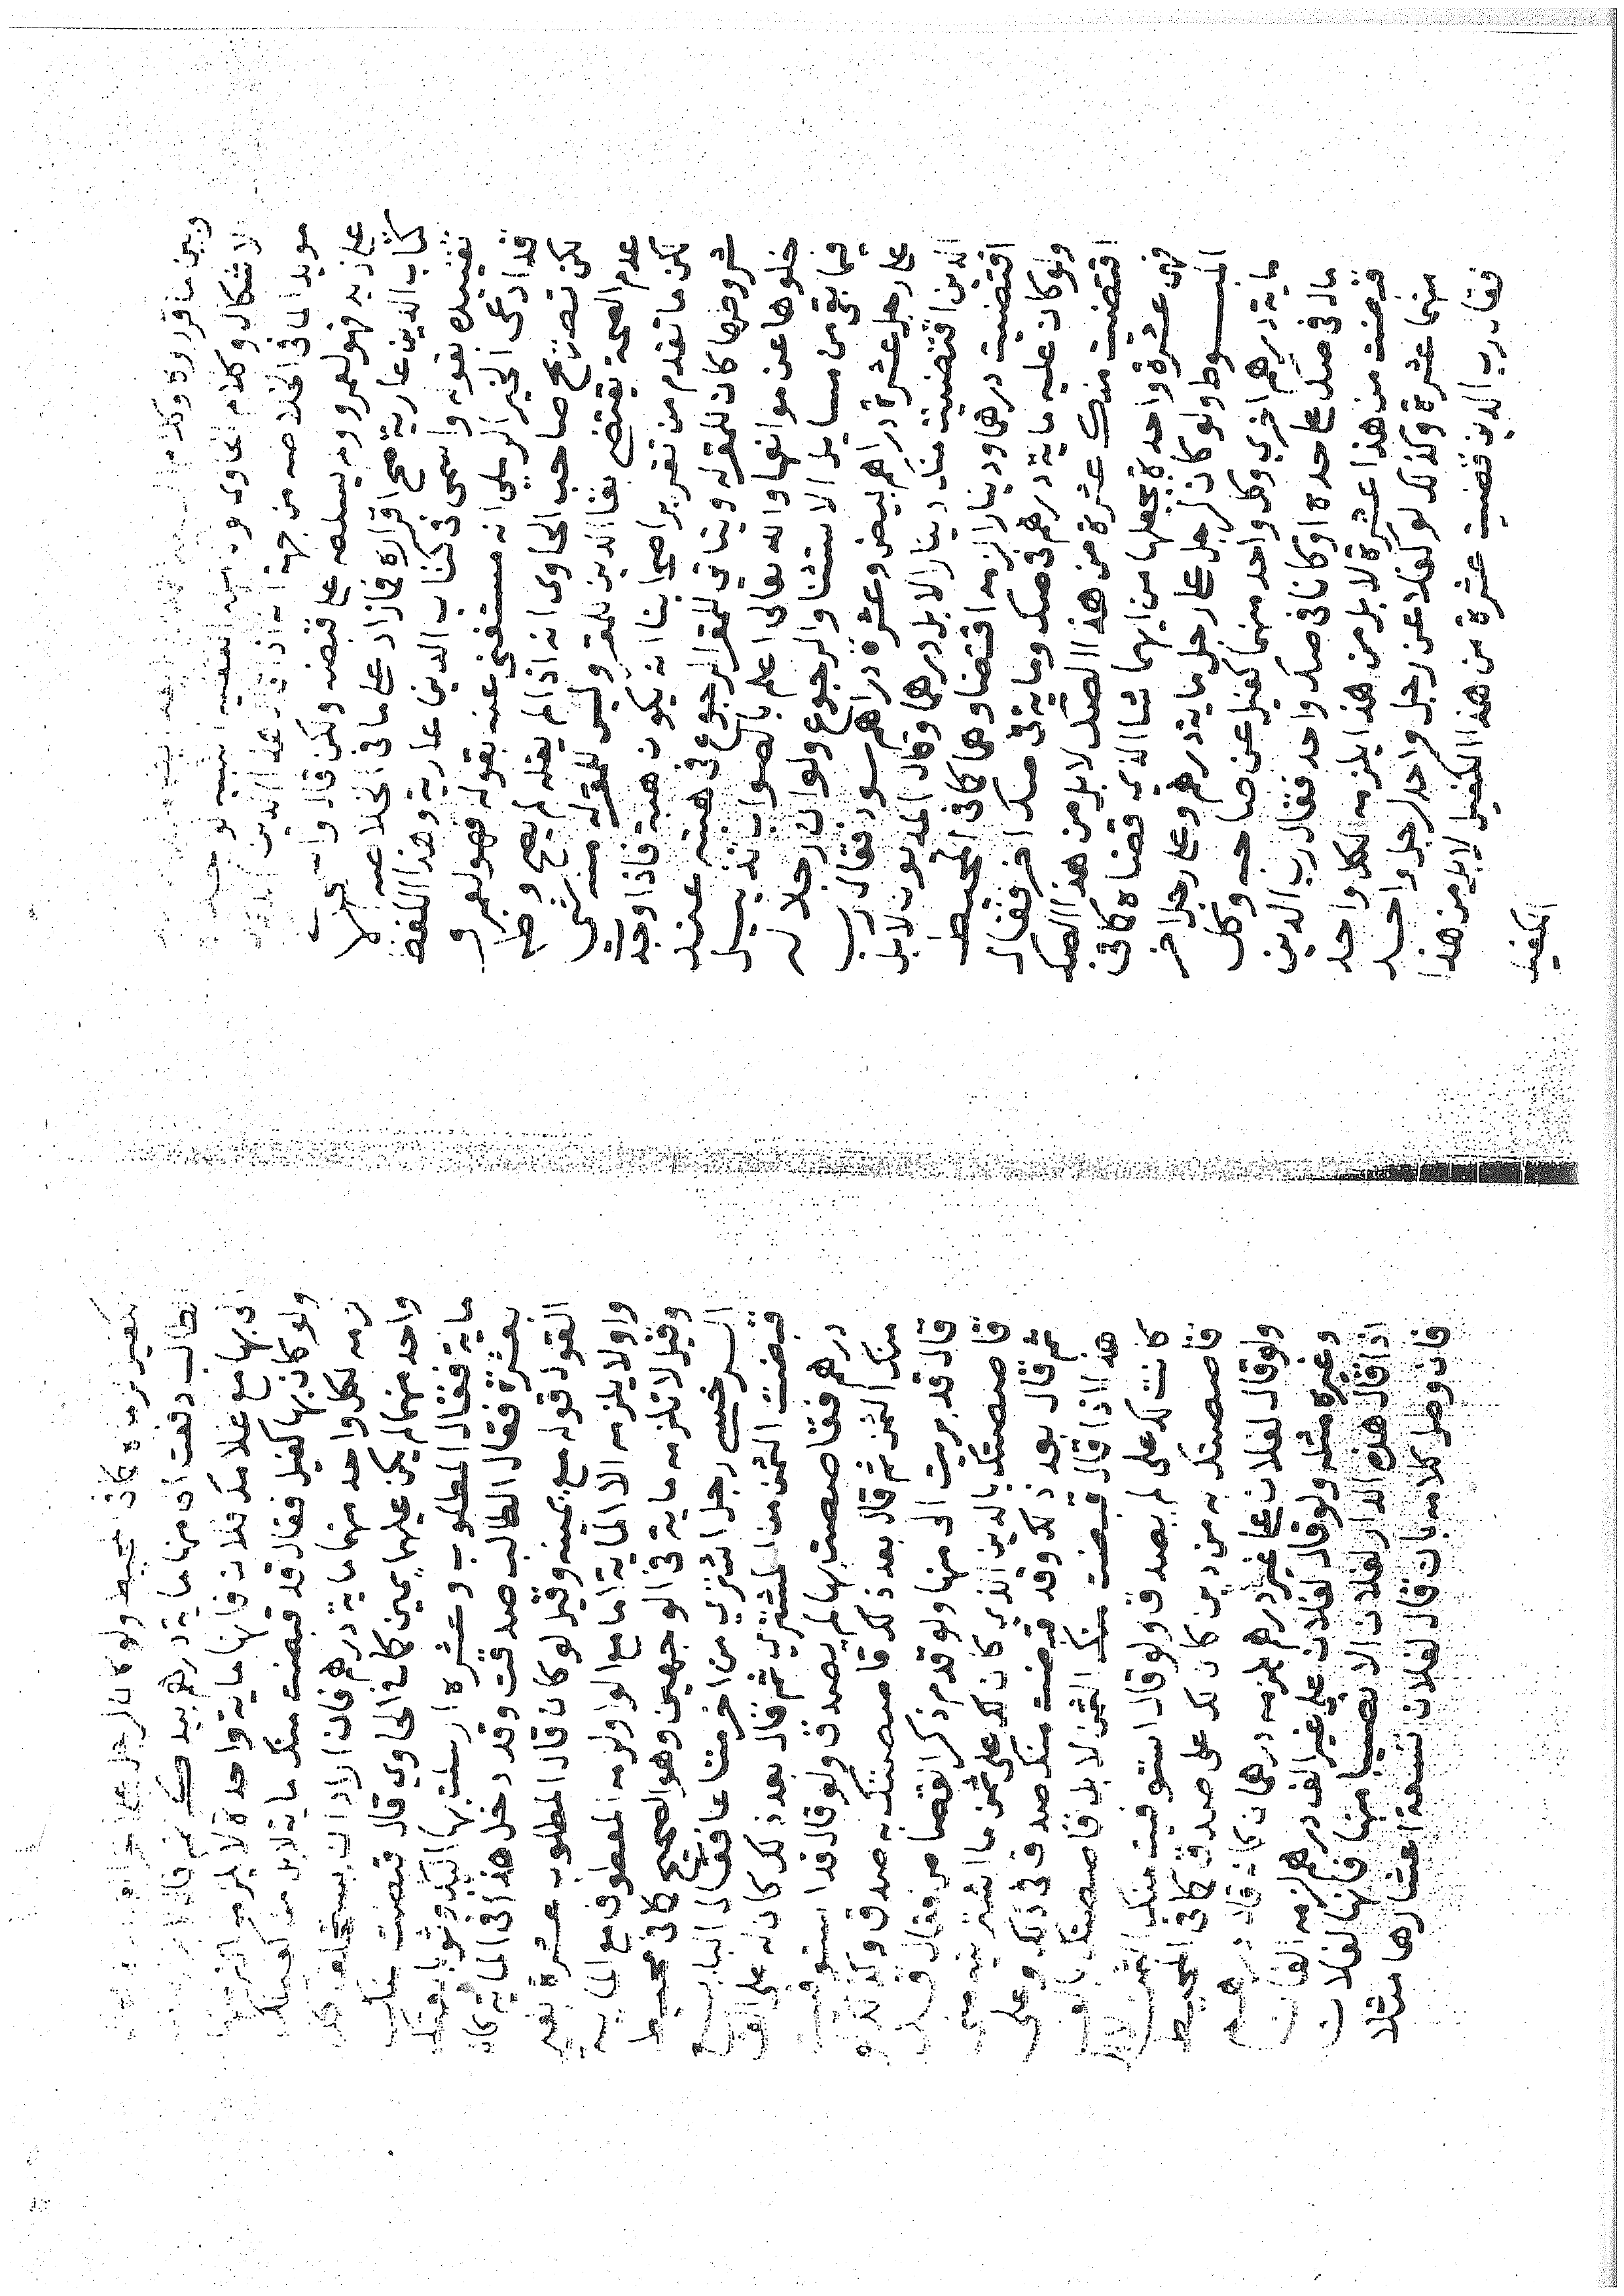 وبين ما قرروه وكلام
لاشكال وكلام الحاوى
مويد لما فى الخلاصه من جهة انه اذا
على زيد فهو لعمرو ولم يسلطه على قبضه ولكن قال واسمى
كتاب الدين عارية صح اقراره فما زاد على ما فى الخلاصه
تقييده بقوله واسمى فى كتاب الدين عارية وهذا اللفظ
قد ادعى الخير الرملى انه مستغنى عنه بقوله فهو لعمرو
لكن تصريح صاحب الحاوى انه اذا لم يقله لم يصح وظا
عدم الصحة يقتضى بقا الدين للمقر وليس للمقر له منه شى
لكن ما تقدم من تقرير اصحابنا انه يكون هبة فاذا وجد
شروطها كان للمقر له ويتاتى للمقر الرجوع فى هبته عند
خلوها عن موانعها والله تعالى اعلم بالصواب تذييل
فيما بقى من مسايل الاستثنا والرجوع ولو ان رجلا له
على رجل عشرة دراهم بيض وعشرة دراهم سود فقال رب
الدين اقتضيت منك دينارا لا بل درهما وقال المديون لا بل
اقتضيت درهما ودينارا لزمه اقتضاوهما كما فى المحيط
ولو كان عليه ماية درهم فى صك وماية فى صك اخر فقال
اقتضيت منك عشرة من هذا الصك لا بل من هذا الصك
فهى عشرة واحدة يجعلها من ايهما شا الذى قضاه كما فى
المبسوط ولو كان لرجل على رجل ماية درهم وعلى رجل اخر
ماية درهم اخرى وكل واحد منهما كفيل عن صاحبه وكل
مال فى صك على حدة او كانا فى صك واحد فقال رب الدين
قبضت من هذا عشرة لا بل من هذا يلزمه لكل واحد
منهما عشرة وكذلك لو كفلا عن رجل واحد لرجل واحد
فقال رب الدين قبضت عشرة من هذا الكفيل لا بل من هذا
الكفيل
كفيل لزمه كما فى محيط ولو كان لرجل على
طالب دفعت الى منها ماية درهم بيدك ثم قال
الى بها مع غلامك فلان فانها ماية واحدة لا يلزمه اكثر
ولو كان بها كفيل فقال قد قبضت منك ماية لا بل من كفيلك
لزمه لكل واحد منهما ماية درهم فان اراد ان يستحلف
واحد منهما لم يكن عليهما يمين كما فى الحاوى قال قبضت منك
ماية فقال المطلوب وعشرة ارسلت بها اليك وثوبا بعتك
بعشرة فقال الطالب صدقت وقد دخل هذا فى الماية كان
القول قوله مع يمينه وقيل لو كان قال المطلوب عشرة بغير
واو لا يلزمه الا الماية اما مع الواو لزمه المعطوف مع الماية
وقيل لا تلزمه ماية فى الوجهين وهو الصحيح كما فى محيط
السرخسى رجل اشترى من اخر متاعا فقال البايع
قبضت الثمن من المشترى ثم قال بعد ذلك كان له على الف
درهم فقاصصته بها لم يصدق ولو قال قد استوفيت
منك الثمن ثم قال بعد ذلك قاصصتك به صدق وكذلك لو
قال قد بريت الى منها ولو قدم ذكر القصاص فقال قد
قاصصتك بالدين الذى كان لك على ثمن ما اشتريته منى
ثم قال بعد ذلك وقد قبضت منك صدق فى ذلك وعلى
هذا اذا قال قبضت منك الثمن لا بل قاصصتك بالف
كانت لك على لم يصدق ولو قال استوفيت منك الثمن
قاصصتك به من دين كان لك على صدق كما فى المحيط
ولو قال لفلان على غير درهم لزمه درهمان كانه قال درهم
وغيره مثله ولو قال لفلان على غير الف درهم لزمه الفان
اذا قال هذه الدار لفلان الا نصيبا منها فانها لفلان
فان وصل كلامه بان قال لفلان تسعة اعشارها مثلا